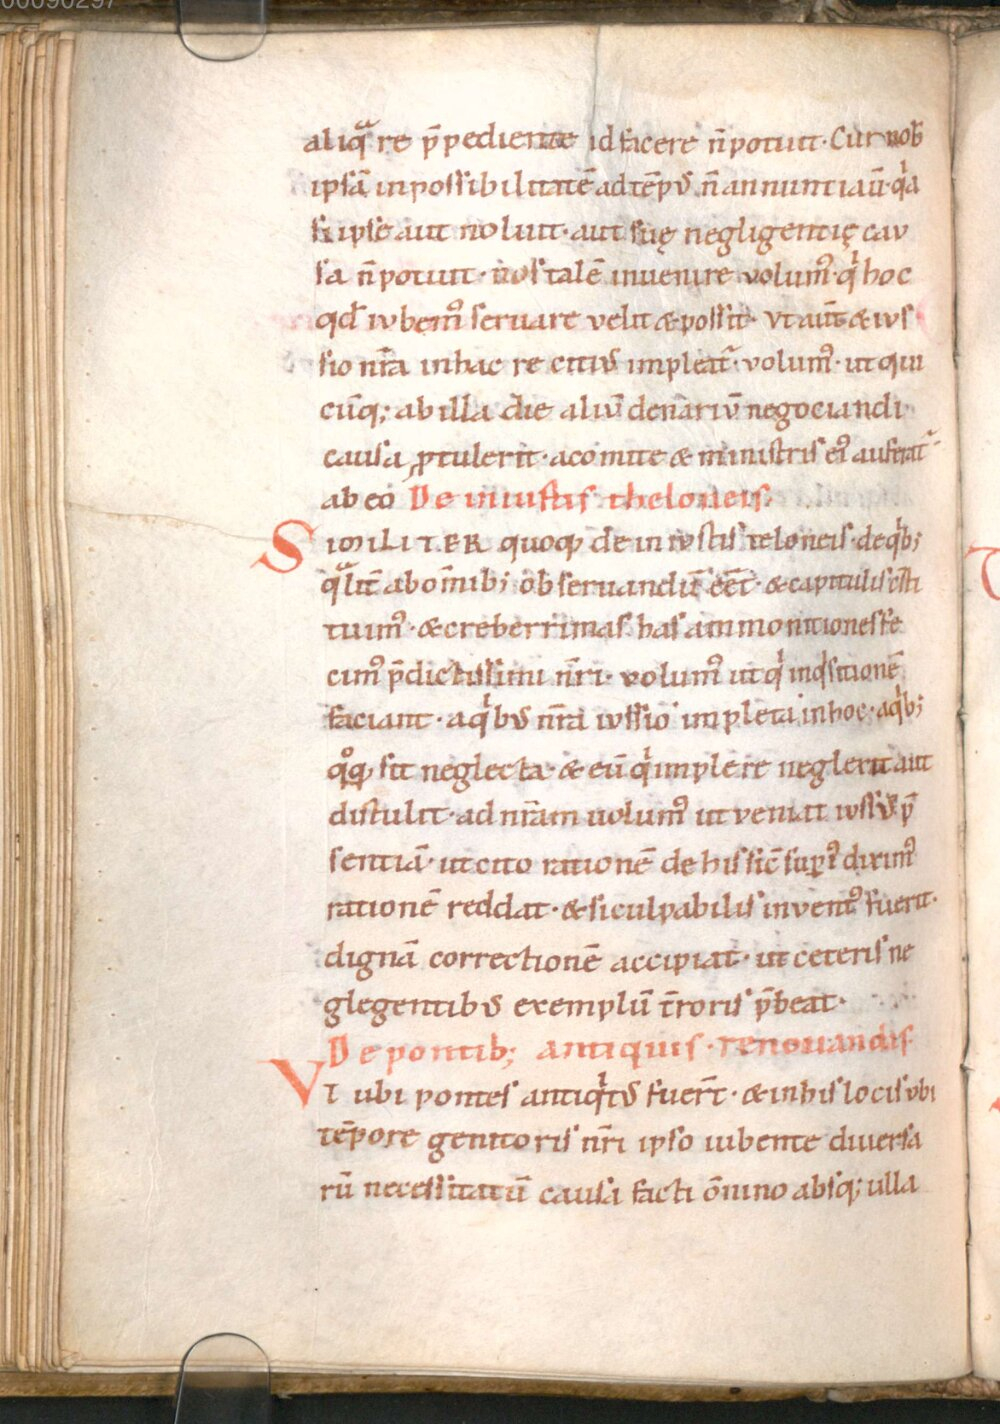 00090297
aliq̄ re p̄pediente id facere n̄ potuit· Cur nob̄
ipsā inpossibilitatē ad tēpꝰ n̄ annuntiauī· qͥa
si ipse aut noluit· aut suę negligentię cau
sa n̄ potuit· nos talē inuenire volumꝰ· qͥ hoc
qd̄ iubemꝰ seruare velit & possit· vt aut̄ & ius
sio nr̄a in hac re citiꝰ impleat᷑· volumꝰ· ut qui
cūq; ab illa die aliū denariū negociandi
causa ꝓtulerit· a comite & ministris eiꝰ auferat᷑·
ab eo De iniustis theloneis.
SIMILITER quoq; de iniustis teloneis· de qͥb;
qͣlit̄ ab om̄ib; obseruandū eēt· & capitulis c̄sti
tuimꝰ· & creberrimas has ammonitiones fe
cimꝰ p̄dictissimi nr̄i· volumꝰ ut qͥ inqͥsitionē
faciant· a qͥbꝰ nr̄a iussio impleta in hoc· a qͥb;
qͦq; sit neglecta· & eū qͥ implere neglexit aut
distulit· ad nr̄am uolumꝰ ut veniat iussiꝰ p̄
sentiā· ut cito rationē de his sic̄ supͥꝰ diximꝰ
rationē reddat· & si culpabilis inventꝰ fuerit·
dignā correctionē accipiat· ut ceteris ne
glegentibꝰ exemplū t̄roris p̄beat·
De pontib; antiquis· renouandis·
VT ubi pontes antiqͥtꝰ fuer̄t· & in his locis ubi
tēpore genitoris nr̄i ipso iubente diuersa
rū necessitatū causa facti ōnino absq; ulla